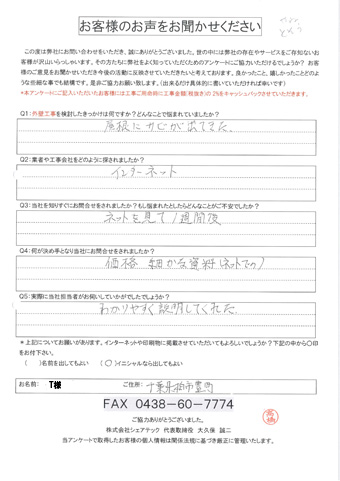 お客様のお声をお聞かせください
この度は弊社にお問い合わせをいただき、誠にありがとうございました。世の中には弊社の存在やサービスをご存知ないお
客様が沢山いらっしゃいます。その方たちに弊社をよく知っていただくためのアンケートにご協力いただけるでしょうか?お客
様のご意見をお聞かせいただき今後の活動に反映させていきたいと考えております。良かったこと、嬉しかったことどのよ
うな些細な事でも結構です。是非ご協力お願い致します。(出来るだけ具体的に書いていただければ幸いです)
*本アンケートにご記入いただいたお客様には工事ご用命時に工事金額(税抜き)の2%をキャッシュバックさせていただきます。
Q1:外壁工事を検討したきっかけは何ですか?どんなことで悩まれていましたか?
屋根にサビが出てきた
Q2:業者や工事会社をどのように探されましたか?
インターネット
Q3:当社を知りすぐにお問合せをされましたか?もし悩まれたとしたらどんなことがご不安でしたか?
ネットを見て1週間後
Q4:何が決め手となり当社にお問合せをされましたか?
価格 細かな資料(ネットでの)
Q5:実際に当社担当者がお伺いしていかがでしたでしょうか?
わかりやすく説明してくれた
*上記についてお願いがあります。インターネットや印刷物に掲載させていただいてもよろしいでしょうか?下記の中から〇印
をお付下さい。
( )名前を出してもよい (〇)イニシャルなら出してもよい
お名前: T様 ご住所: 千葉県柏市豊四
FAX 0438-60-7774
ご協力ありがとうございました。
株式会社シェアテック 代表取締役 大久保 誠二
当アンケートで取得したお客様の個人情報は関係法規に基づき厳正に管理いたします。